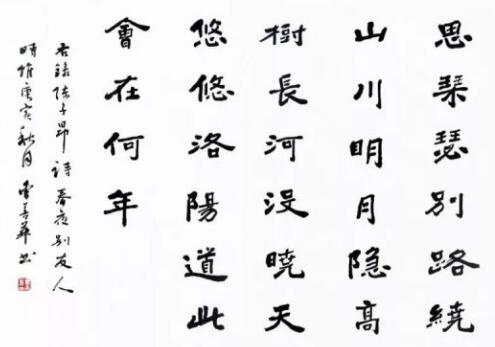 思琴瑟別路繞
山川明月隐高
樹長河没曉天
悠悠洛陽道此
會在何年
右録陈子昂詩春夜别友人
時惟庚寅秋月 书